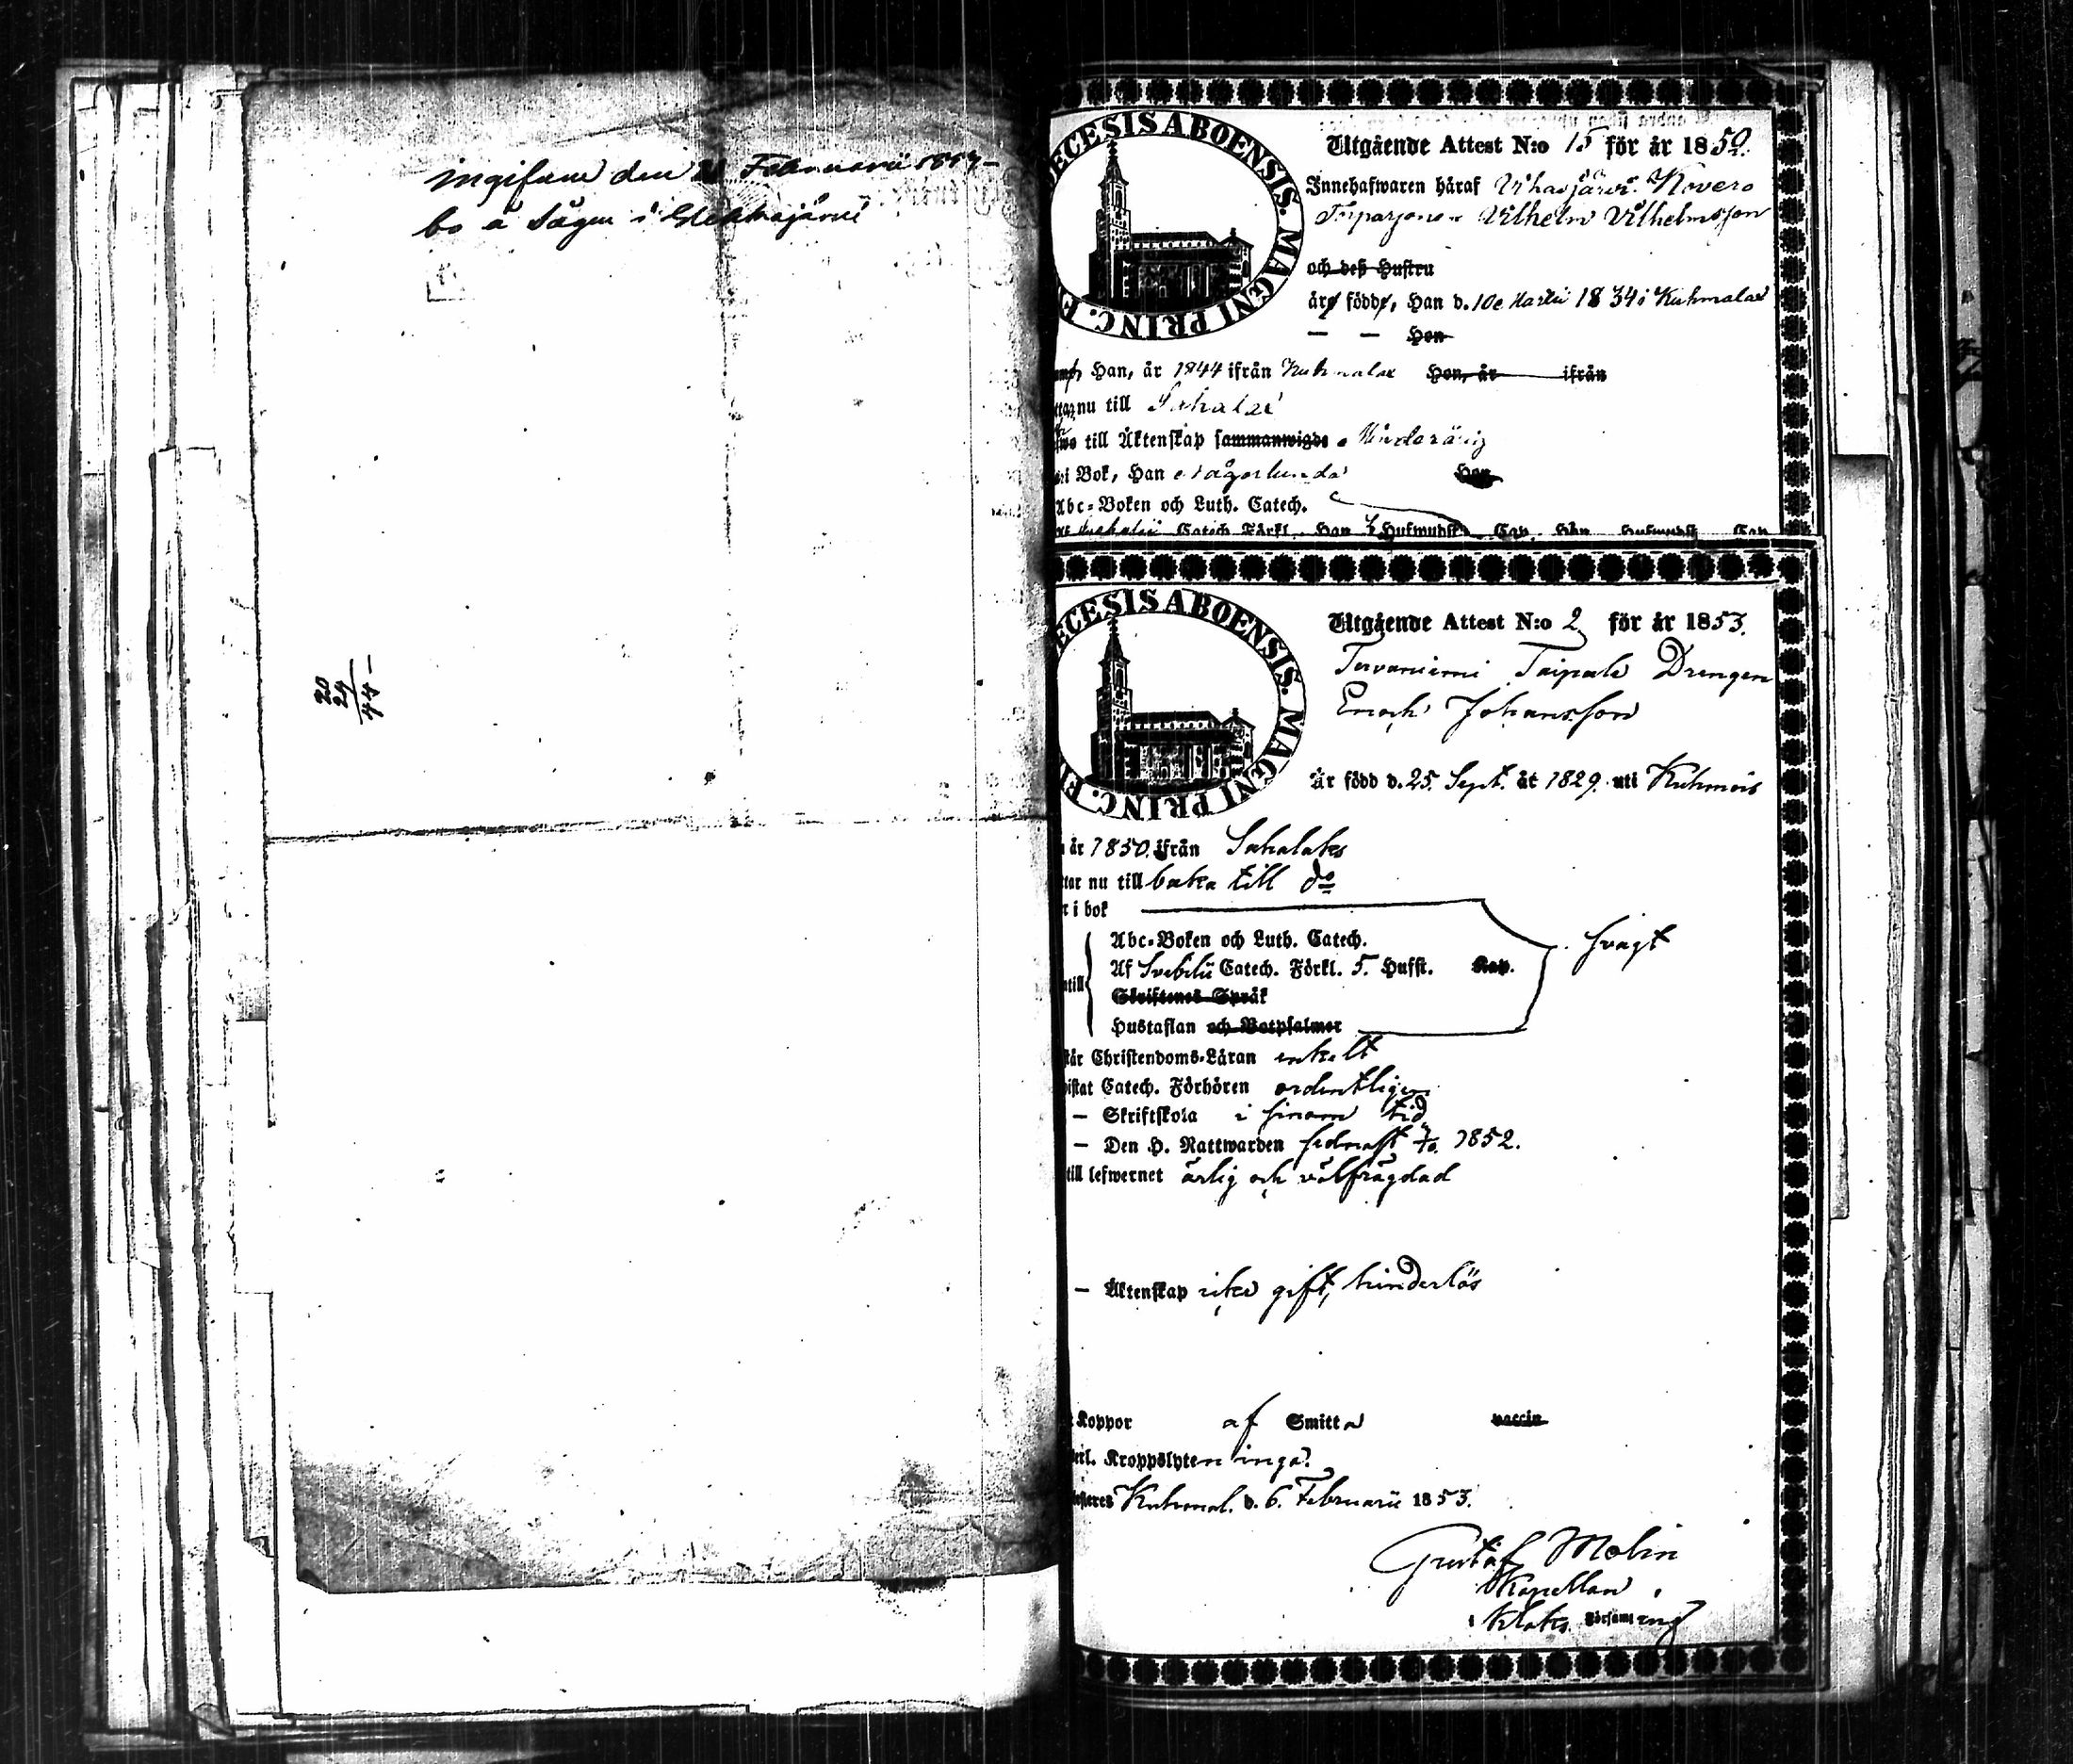 den Februarii
bo å Sågen i
20
24
44 -
ECESIS ABOENSIS. MAGNI PRINC. F
Utgående Attest N:o 15 för år 1850.
Innehafwaren häraf Vihasjärvi Rovero
Vilhelm Vilhelmsson
och deß Hustru
äro födde, Han d. 10e Martii 1834 i Kuhmalax
— — Hon
Han, år 1844 ifrån Kuhmalax Hon, år ifrån
nu till Sahalax
till Äktenskap sammanwigde Minderårig
i Bok, Han någorlunda Hon
Abc-Boken och Luth. Catech.
Catech Förkl. Han Hufwudst Cap. Hon Hufwudst Cap
ECESIS ABOENSIS. MAGNI PRINC. F
Utgående Attest N:o 2 för år 1853.
Taipale Drengen
Enoch Johansson
Är född d. 25. Sept. år 1829. uti Kuhmois
år 1850. ifrån Sahalaks
tar nu till baka till do
r i bok
Abc-Boken och Luth. Catech. svagt
Af Svebilii Catech. Förkl. 5. Hufst. Kap.
till
Skriftenes Språk
Hustaflan och Botpsalmer
står Christendoms-Läran enkelt
wistat Catech. Förhören ordentligen
— Skriftskola i sinom tid
— Den H. Nattwarden sednast 1852.
till lefwernet ärlig och välfrägdad
— Äktenskap icke gift, hinderlös
Koppor af Smitta vaccin
Kroppslyten inga.
Kuhmal. d. 6. Februarii 1853.
Gustaf Molin
Kapellan
Klaks. Församling